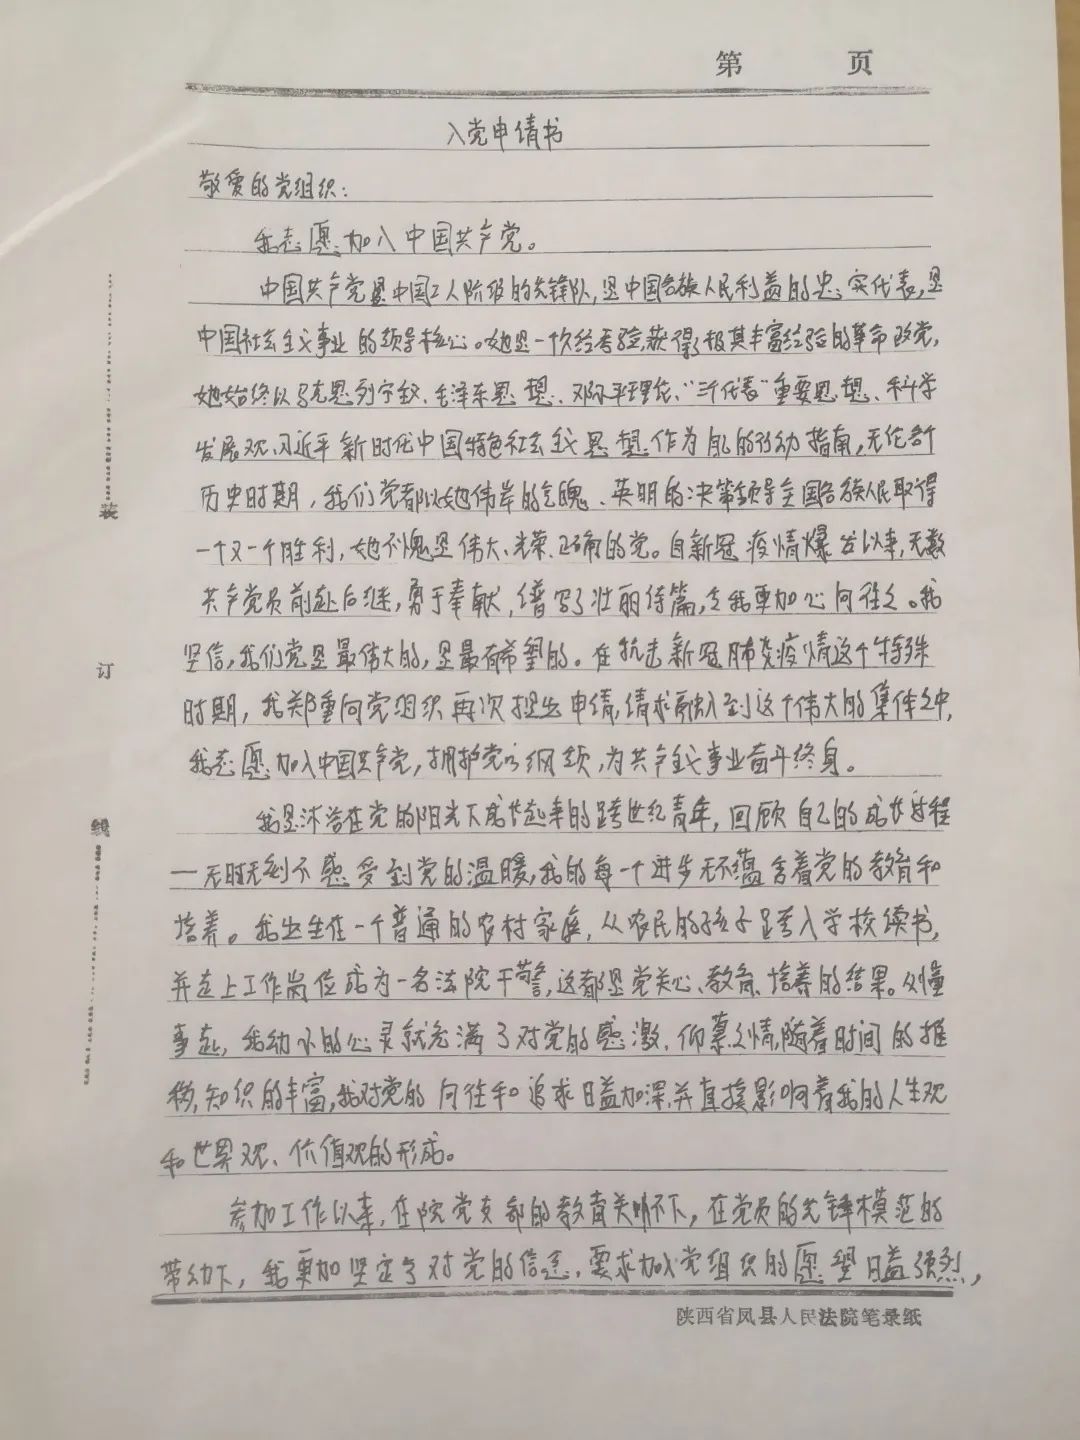 第 页
入党申请书
敬爱的党组织：
我志愿加入中国共产党。
中国共产党是中国工人阶级的先锋队，是中国各族人民利益的忠实代表，是
中国社会主义事业的领导核心。她是一个久经考验，获得极其丰富经验的革命政党，
她始终以马克思列宁主义、毛泽东思想、邓小平理论、“三个代表”重要思想、科学
发展观、习近平新时代中国特色社会主义思想作为自己的行动指南，无论各个
历史时期，我们党都以她伟岸的气魄、英明的决策领导全国各族人民取得
一个又一个胜利，她不愧是伟大、光荣、正确的党。自新冠疫情爆发以来，无数
共产党员前赴后继，勇于奉献，谱写了壮丽诗篇，令我更加心向往之。我
坚信，我们党是最伟大的，是最有希望的。在抗击新冠肺炎疫情这个特殊
时期，我郑重向党组织再次提出申请，请求融入到这个伟大的集体之中，
我志愿加入中国共产党，拥护党的纲领，为共产主义事业奋斗终身。
我是沐浴在党的阳光下成长起来的跨世纪青年，回顾自己的成长过程
一无时无刻不感受到党的温暖，我的每一个进步无不蕴含着党的教育和
培养。我出生在一个普通的农村家庭，从农民的孩子跨入学校读书，
并走上工作岗位成为一名法院干警，这都是党关心、教育、培养的结果。从懂
事起，我幼小的心灵就充满了对党的感激、仰慕之情，随着时间的推
移，知识的丰富，我对党的向往和追求日益加深，并直接影响着我的人生观
和世界观、价值观的形成。
参加工作以来，在院党支部的教育关怀下，在党员的先锋模范的
带动下，我更加坚定了对党的信念，要求加入党组织的愿望日益强烈，
陕西省凤县人民法院笔录纸
装
订
线